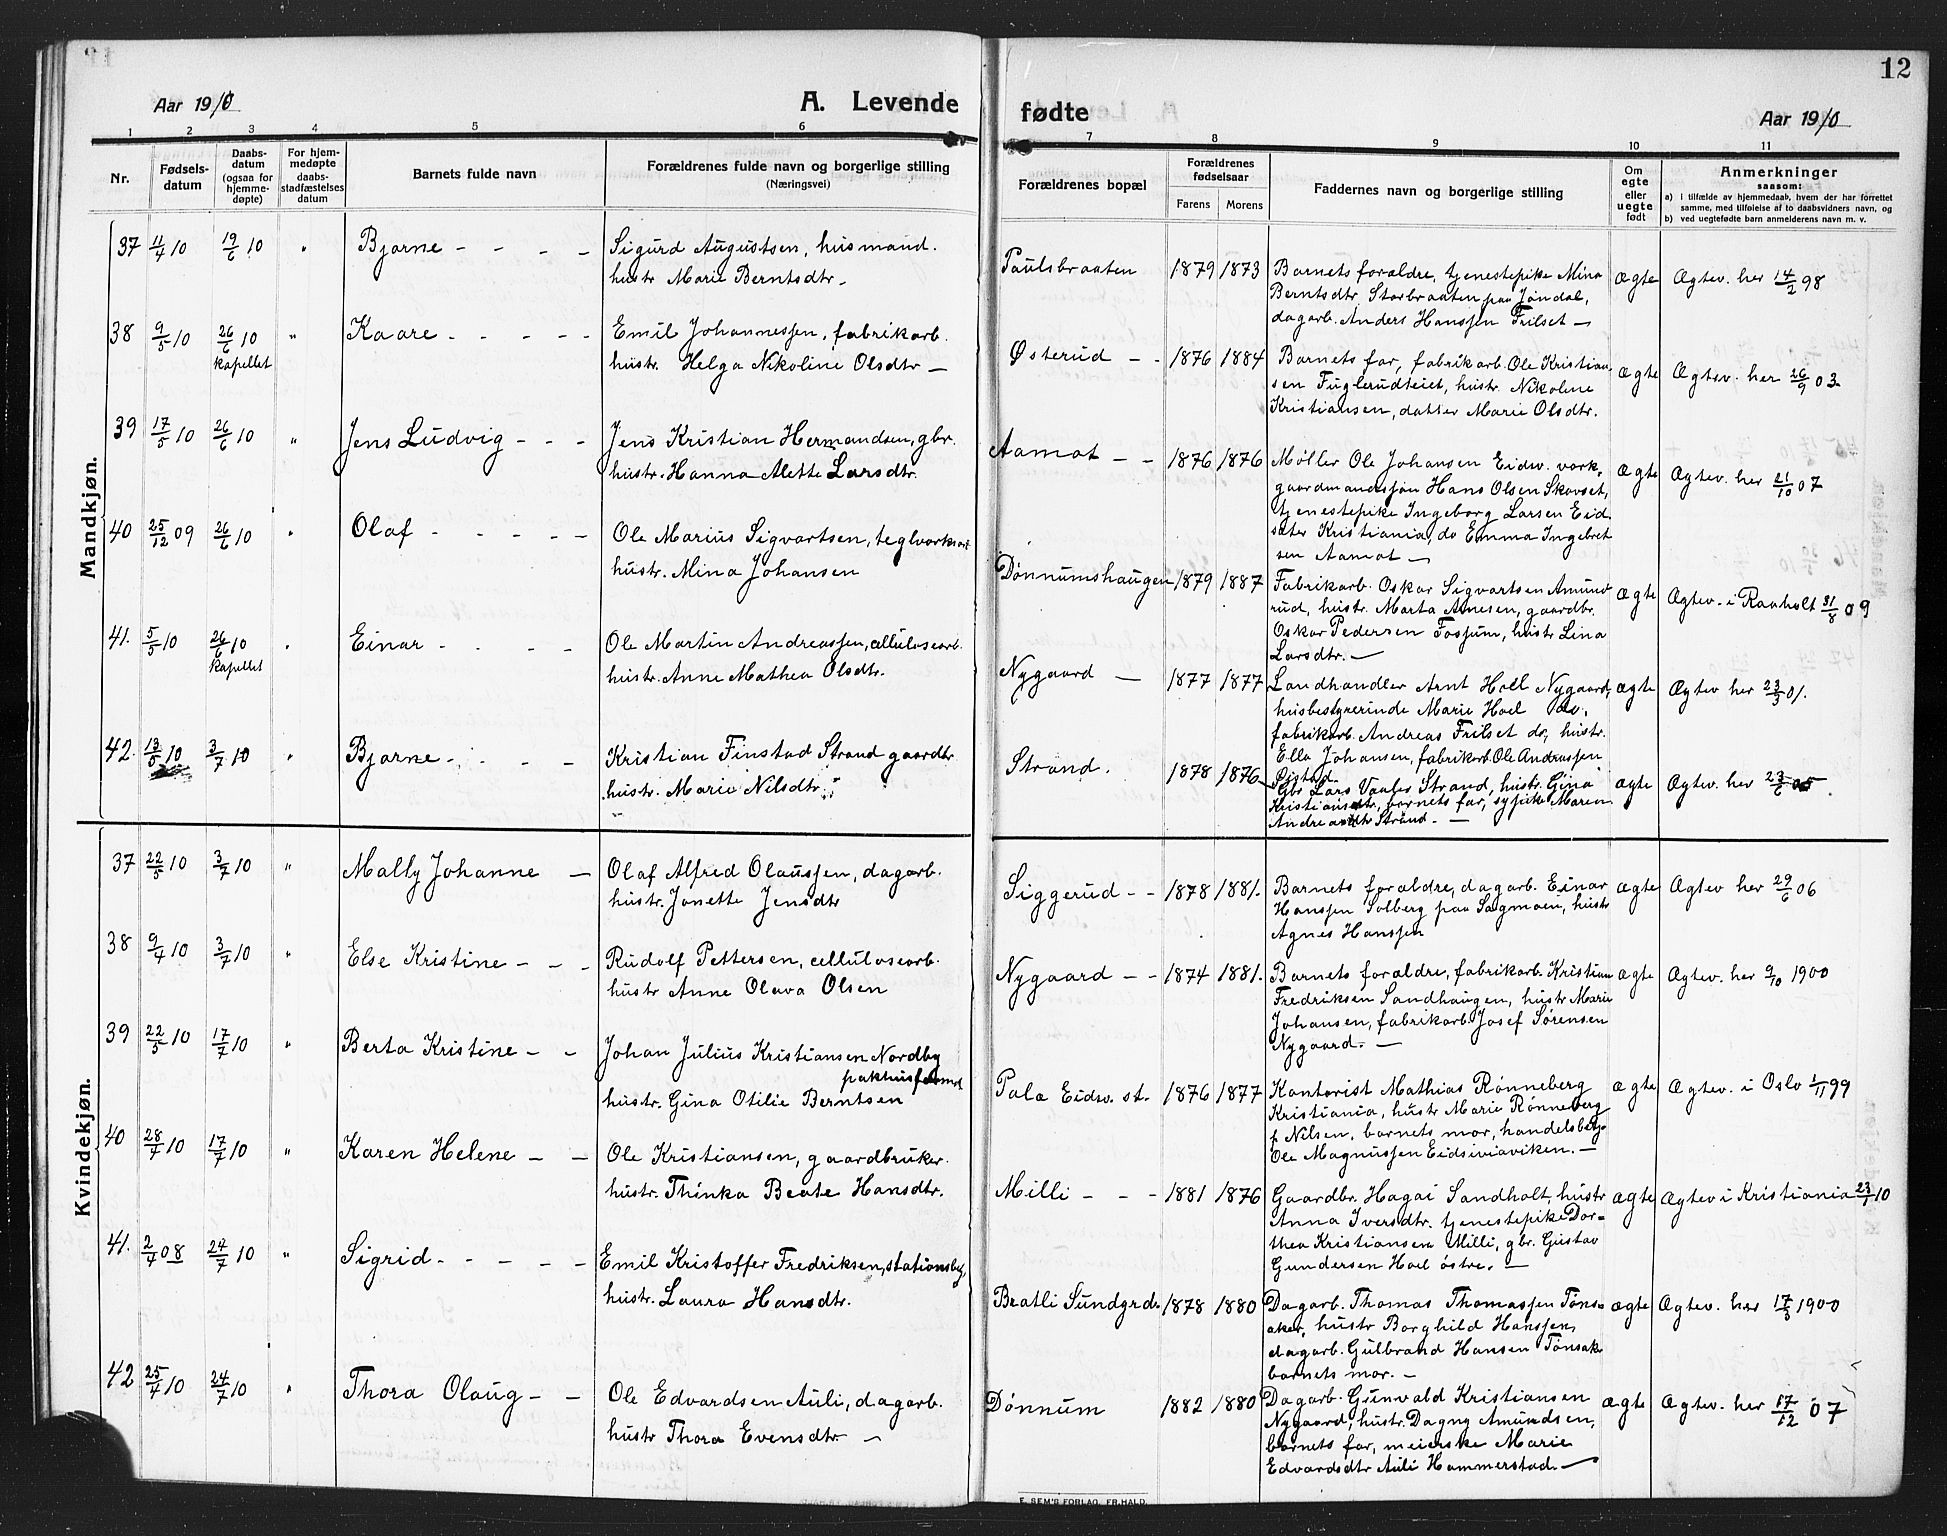 12
Aar 1910
A. Levende
fødte
Aar 1910
1 2 3 4 5 6 7 8 9 10 11
Nr.
Fødsels-
datum
Daabs-
datum
(ogsaa for
hjemme-
døpte)
For hjem-
medøpte
daabs-
stadfæstelses
datum
Barnets fulde navn
Forældrenes fulde navn og borgerlige stilling
(Næringsvei)
Forældrenes bopæl
Forældrenes
fødselsaar
Farens Morens
Faddernes navn og borgerlige stilling
Om
egte
eller
uegte
født
Anmerkninger
saasom:
a) i tilfælde av hjemmedaab, hvem der har forrettet
samme, med tilføielse af to daabsvidners navn, og
b) ved uegtefødte barn anmelderens navn m. v.
Mandkjøn.
37 11/4 10 19/6 10 " Bjarne - - - -
Sigurd Augustsen, husmand.
hustr Marie Berntsdtr -
Paulsbraaten 1879 1873
Barnets forældre, tjenestepike Mina
Berntsdtr Storbraaten paa Jøndal,
dagarb. Anders Hanssen Frilset -
ægte Ægtev. her 14/2 98
38 9/5 10 26/6 10 " Kaare - - - - -
kapellet
Emil Johannessen, fabrikarb.
hustr. Helga Nikoline Olsdtr -
Østerud - - 1876 1884
Barnets far, fabrikarb. Ole Kristian
sen Fuglerudteiet, hustr. Nikolene
Kristiansen, datter Marie Olsdtr.
ægte Ægtev. her 26/9 03
39 17/5 10 26/6 10 " Jens Ludvig - - -
Jens Kristian Hermandsen, gbr.
hustr. Hanna Alette Larsdtr.
Aamot - - 1876 1876
Møller Ole Johansen Eidsv. værk,
gaardmandssøn Hans Olsen Skavset,
tjenestepike Ingeborg Larsen Eid
sæter Kristiania, do Emma Ingebret
sen Aamot -
ægte Ægtev. her 21/10 07
40 25/12 09 26/6 10 " Olaf - - - - -
Ole Marius Sigvartsen, teglværksarb
hustr. Mina Johansen
Dønnumshaugen 1879 1887
Fabrikarb. Oskar Sigvartsen Amund
rud, hustr. Marta Arnesen, gaardbr.
Oskar Pedersen Fossum, hustr Lina
Larsdtr. -
ægte Ægtev. i Raaholt 31/8 09
41. 5/5 10 26/6 10 " Einar - - - -
kapellet
Ole Martin Andreassen, cellulosearb.
hustr. Anne Mathea Olsdtr.
Nygaard - 1877 1877
Landhandler Arnt Holl Nygaard,
husbestyrerinde Marie Hoel do,
fabrikarb. Andreas Frilset do, hustr.
Ella Johansen, fabrikarb. Ole Andreassen
Sistad.
ægte Ægtev her 23/3 01.
42. 13/5 10 3/7 10 " Bjarne - - - -
Kristian Finstad Strand gaardbr
hustr. Marie Nilsdtr.
Strand. 1878 1876
Gbr Lars Vaaler Strand, hustr. Gina
Kristiansdtr, barnets far, sypike Maren
Andreasdtr Strand. -
ægte Ægtev. her 23/6 05.
Kvindekjøn.
37 22/5 10 3/7 10 " Mally Johanne -
Olaf Alfred Olaussen, dagarb.
hustr. Jonette Jensdtr
Siggerud - - 1878 1881.
Barnets forældre, dagarb. Einar
Hanssen Solberg paa Sagmoen, hustr
Agnes Hanssen
ægte Ægtev her 29/6 06
38 9/4 10 3/7 10 " Else Kristine - - -
Rudolf Pettersen, cellulosearb.
hustr Anne Olava Olsen
Nygaard - - 1874 1881.
Barnets forældre, fabrikarb. Kristian
Fredriksen Sandhaugen, hustr Marie
Johansen, fabrikarb. Josef Sørensen
Nygaard. -
ægte Ægtev. her 9/10 1900
39 22/5 10 17/7 10 " Berta Kristine - -
Johan Julius Kristiansen Nordby
pakhusformd
hustr. Gina Otilie Berntsen
Palæ Eidsv. st. 1876 1877
Kontorist Mathias Rønneberg
Kristiania, hustr Marie Rønneberg
f. Nilsen, barnets mor, handelsbetj.
Ole Magnussen Eidsiviaviken. -
ægte Ægtev. i Oslo 1/11 99
40 28/4 10 17/7 10 " Karen Helene - -
Ole Kristiansen, gaardbruker.
hustr. Thinka Beate Hansdtr.
Milli - - - 1881 1876
Gaardbr. Hagai Sandholt, hustr
Anna Iversdtr. tjenestepike Dor-
thea Kristiansen Milli, gbr. Gustav
Gundersen Hoel østre. -
ægte Ægtev i Kristiania 23/1 10
41. 2/4 08 24/7 10 " Sigrid - - - - -
Emil Kristoffer Fredriksen, stationsbetj,
hustr. Laura Hansdtr.
Bratli Sundgrd. 1878 1880
Dagarb. Thomas Thomassen Tøns-
aker, hustr Borghild Hanssen,
dagarb. Gulbrand Hansen Tønsak.
barnets mor. -
ægte Ægtev. her 17/3 1900
42 25/4 10 24/7 10 " Thora Olaug - -
Ole Edvardsen Auli, dagarb.
hustr Thora Evensdtr. -
Dønnum 1882 1880
Dagarb. Gunvald Kristiansen
Nygaard, hustr. Dagny Amundsen,
barnets far, meierske Marie
Edvardsdtr Auli Hammerstad. -
ægte Ægtev. her 17/12 07
E. SEM'S FORLAG, FR.HALD.